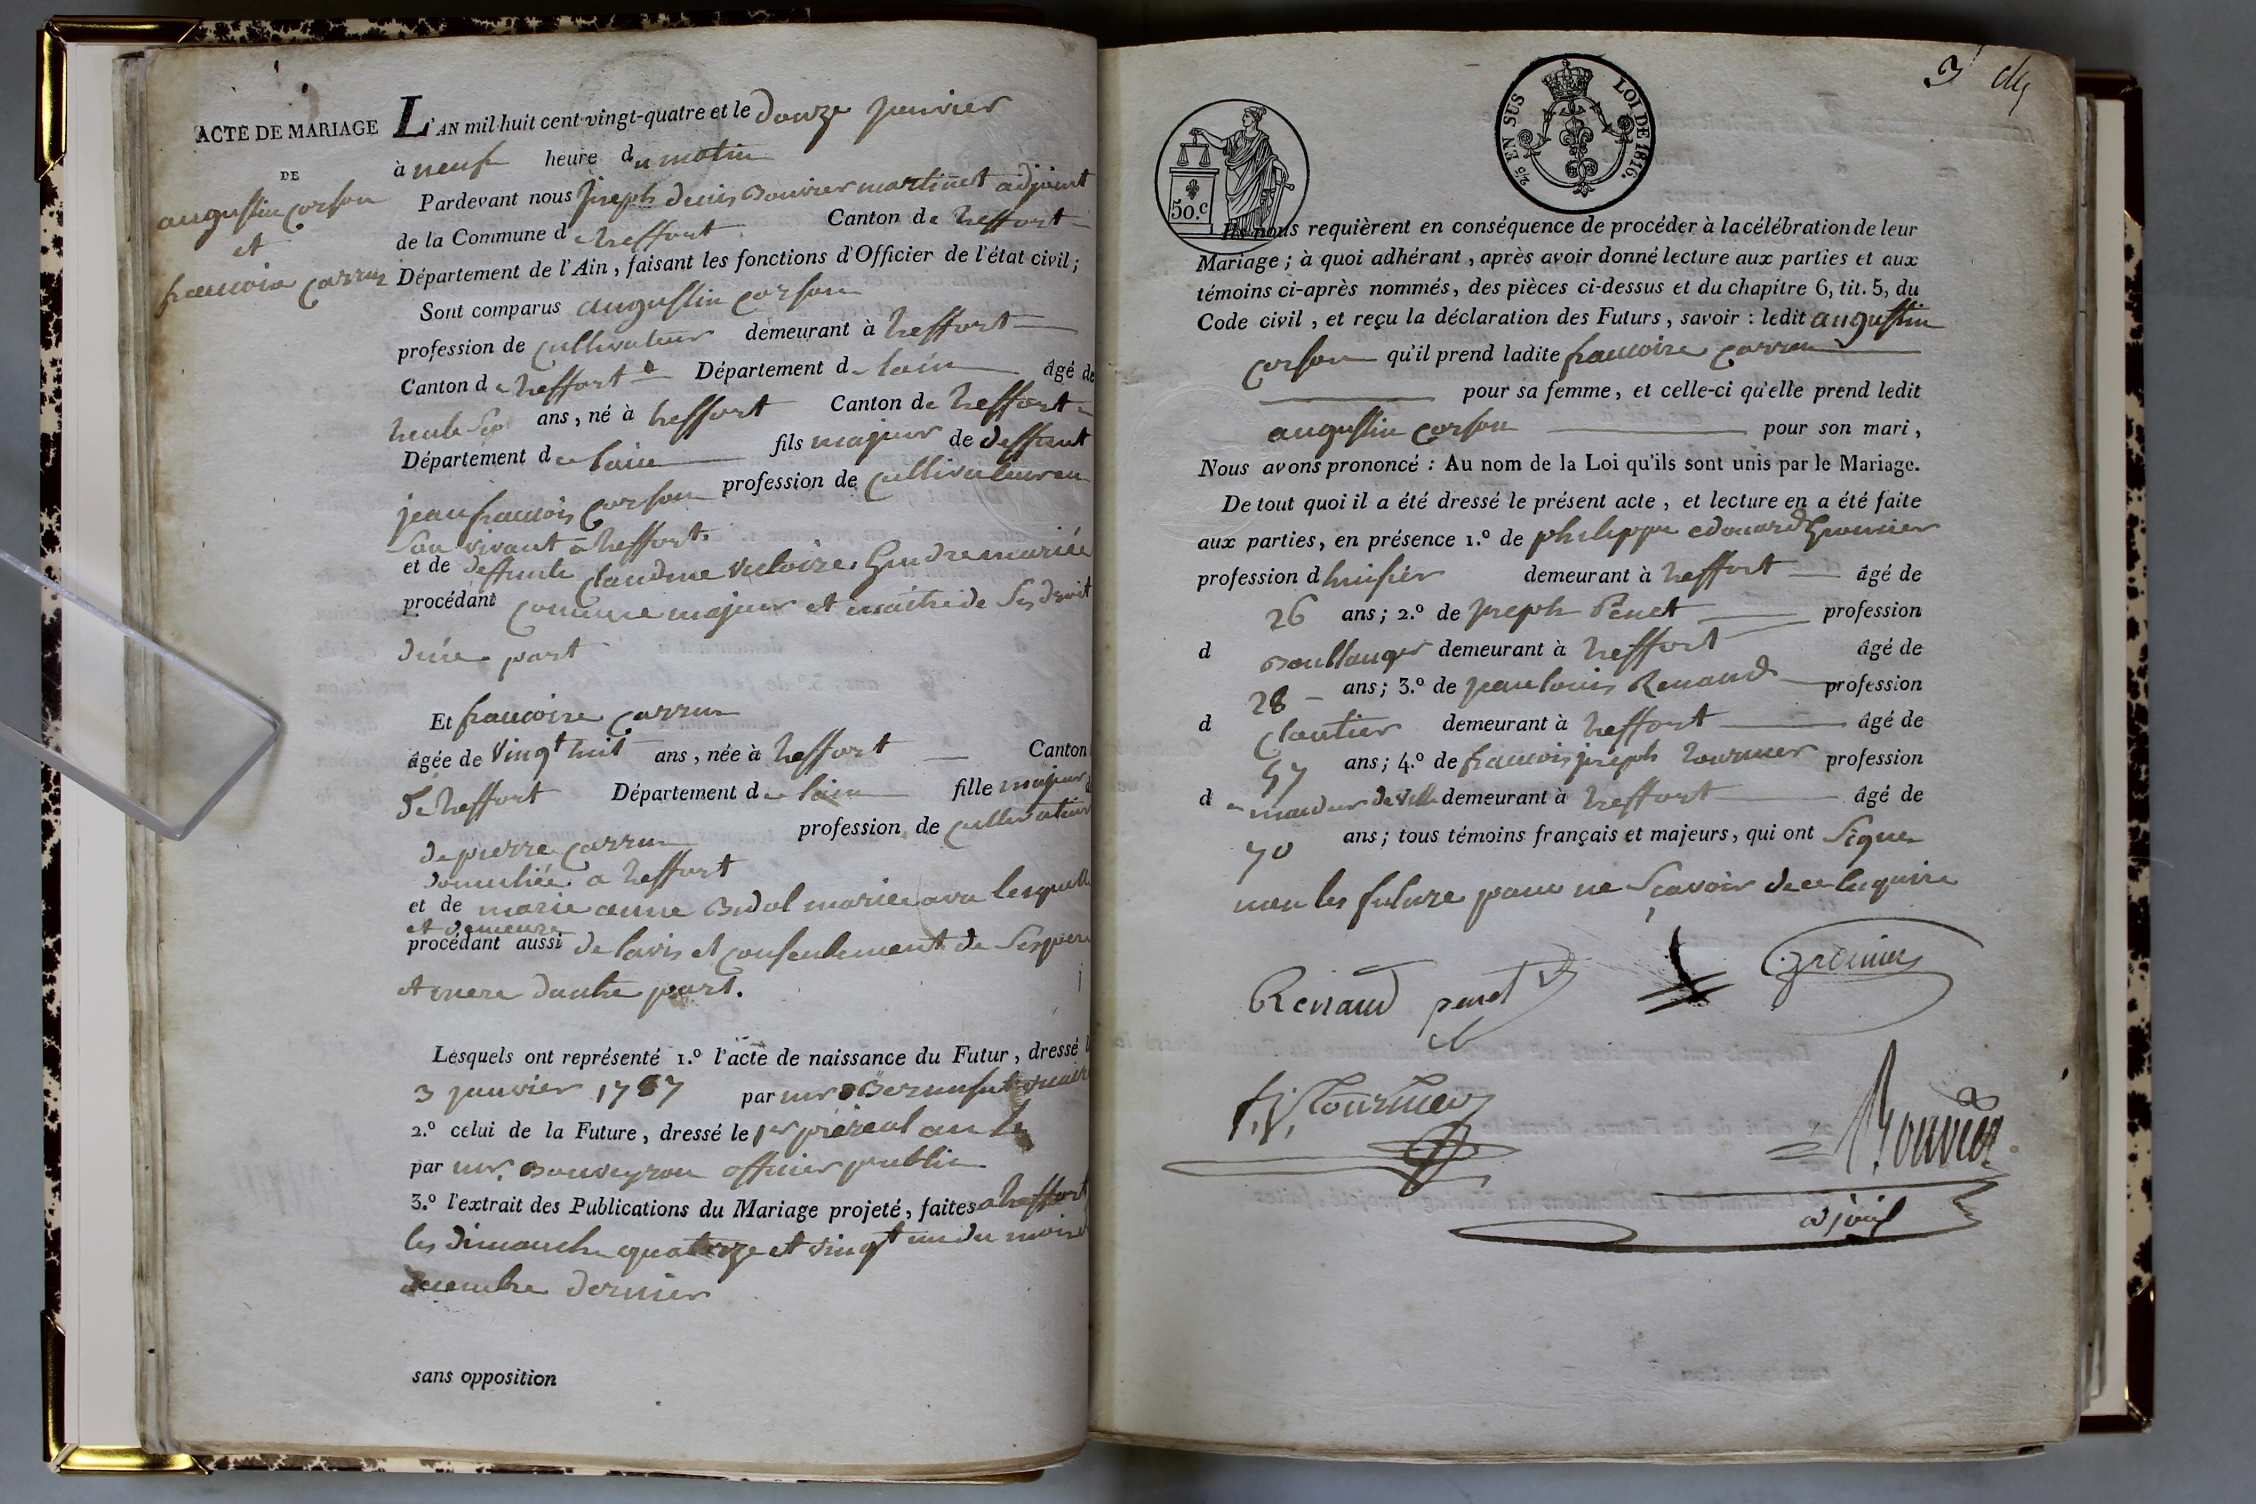 ACTE DE MARIAGE
DE
augustin corson
et
francoise carrun
L'AN mil huit cent vingt-quatre et le douze janvier
à neuf heure du matin
Pardevant nous joseph denis Bouvier martinet adjoint
de la Commune de treffort Canton de treffort
Département de l'Ain, faisant les fonctions d'Officier de l'état civil;
Sont comparus augustin corson
profession de cultivateur demeurant à treffort
Canton de treffort Département de lain âgé de
trente sept ans, né à treffort Canton de treffort
Département de lain fils majeur de deffunt
jean francois corson profession de cultivateur en
son vivant a treffort
et de deffunte claudine victoire mariée
procédant comme majeur et maitre de ses droit
dune part
Et francoise carrun
âgée de vingt huit ans, née à treffort Canton
de treffort Département de lain fille majeur
de pierre carrun profession de cultivateur
domicilié a treffort
et de marie anne Bidal mariee avec lesquelle
et demeure
procédant aussi de lavis et consentement de ses pere
et mere dautre part.
Lesquels ont représenté 1.º l'acte de naissance du Futur, dressé
3 janvier 1787 par mr
2.º celui de la Future, dressé le 1er prereal an
par mr. Bouveyron officier public
3.º l'extrait des Publications du Mariage projeté, faites a treffort
les dimanche quatorze et vingt un du mois
decembre dernier
sans opposition
3
50.C
2/5 EN SUS LOI DE 1816.
Ils nous requièrent en conséquence de procéder à la célébration de leur
Mariage; à quoi adhérant, après avoir donné lecture aux parties et aux
témoins ci-après nommés, des pièces ci-dessus et du chapitre 6, tit. 5, du
Code civil, et reçu la déclaration des Futurs, savoir : ledit augustin
corson qu'il prend ladite francoise carrun
pour sa femme, et celle-ci qu'elle prend ledit
augustin corson pour son mari,
Nous avons prononcé : Au nom de la Loi qu'ils sont unis par le Mariage.
De tout quoi il a été dressé le présent acte, et lecture en a été faite
aux parties, en présence 1.º de philippe edouard Gromier
profession d huisier demeurant à treffort âgé de
26 ans; 2.º de joseph Penet profession
d Boullanger demeurant à treffort âgé de
28 ans; 3.º de jean louis Renaud profession
d cloutier demeurant à treffort âgé de
57 ans; 4.º de francois joseph tournier profession
de de ville demeurant à treffort âgé de
70 ans; tous témoins français et majeurs, qui ont signe
non les future pour ne scavoir de ce enquire
Renaud penet Gromier
f. j. Tournier
Bouvier
adjoint